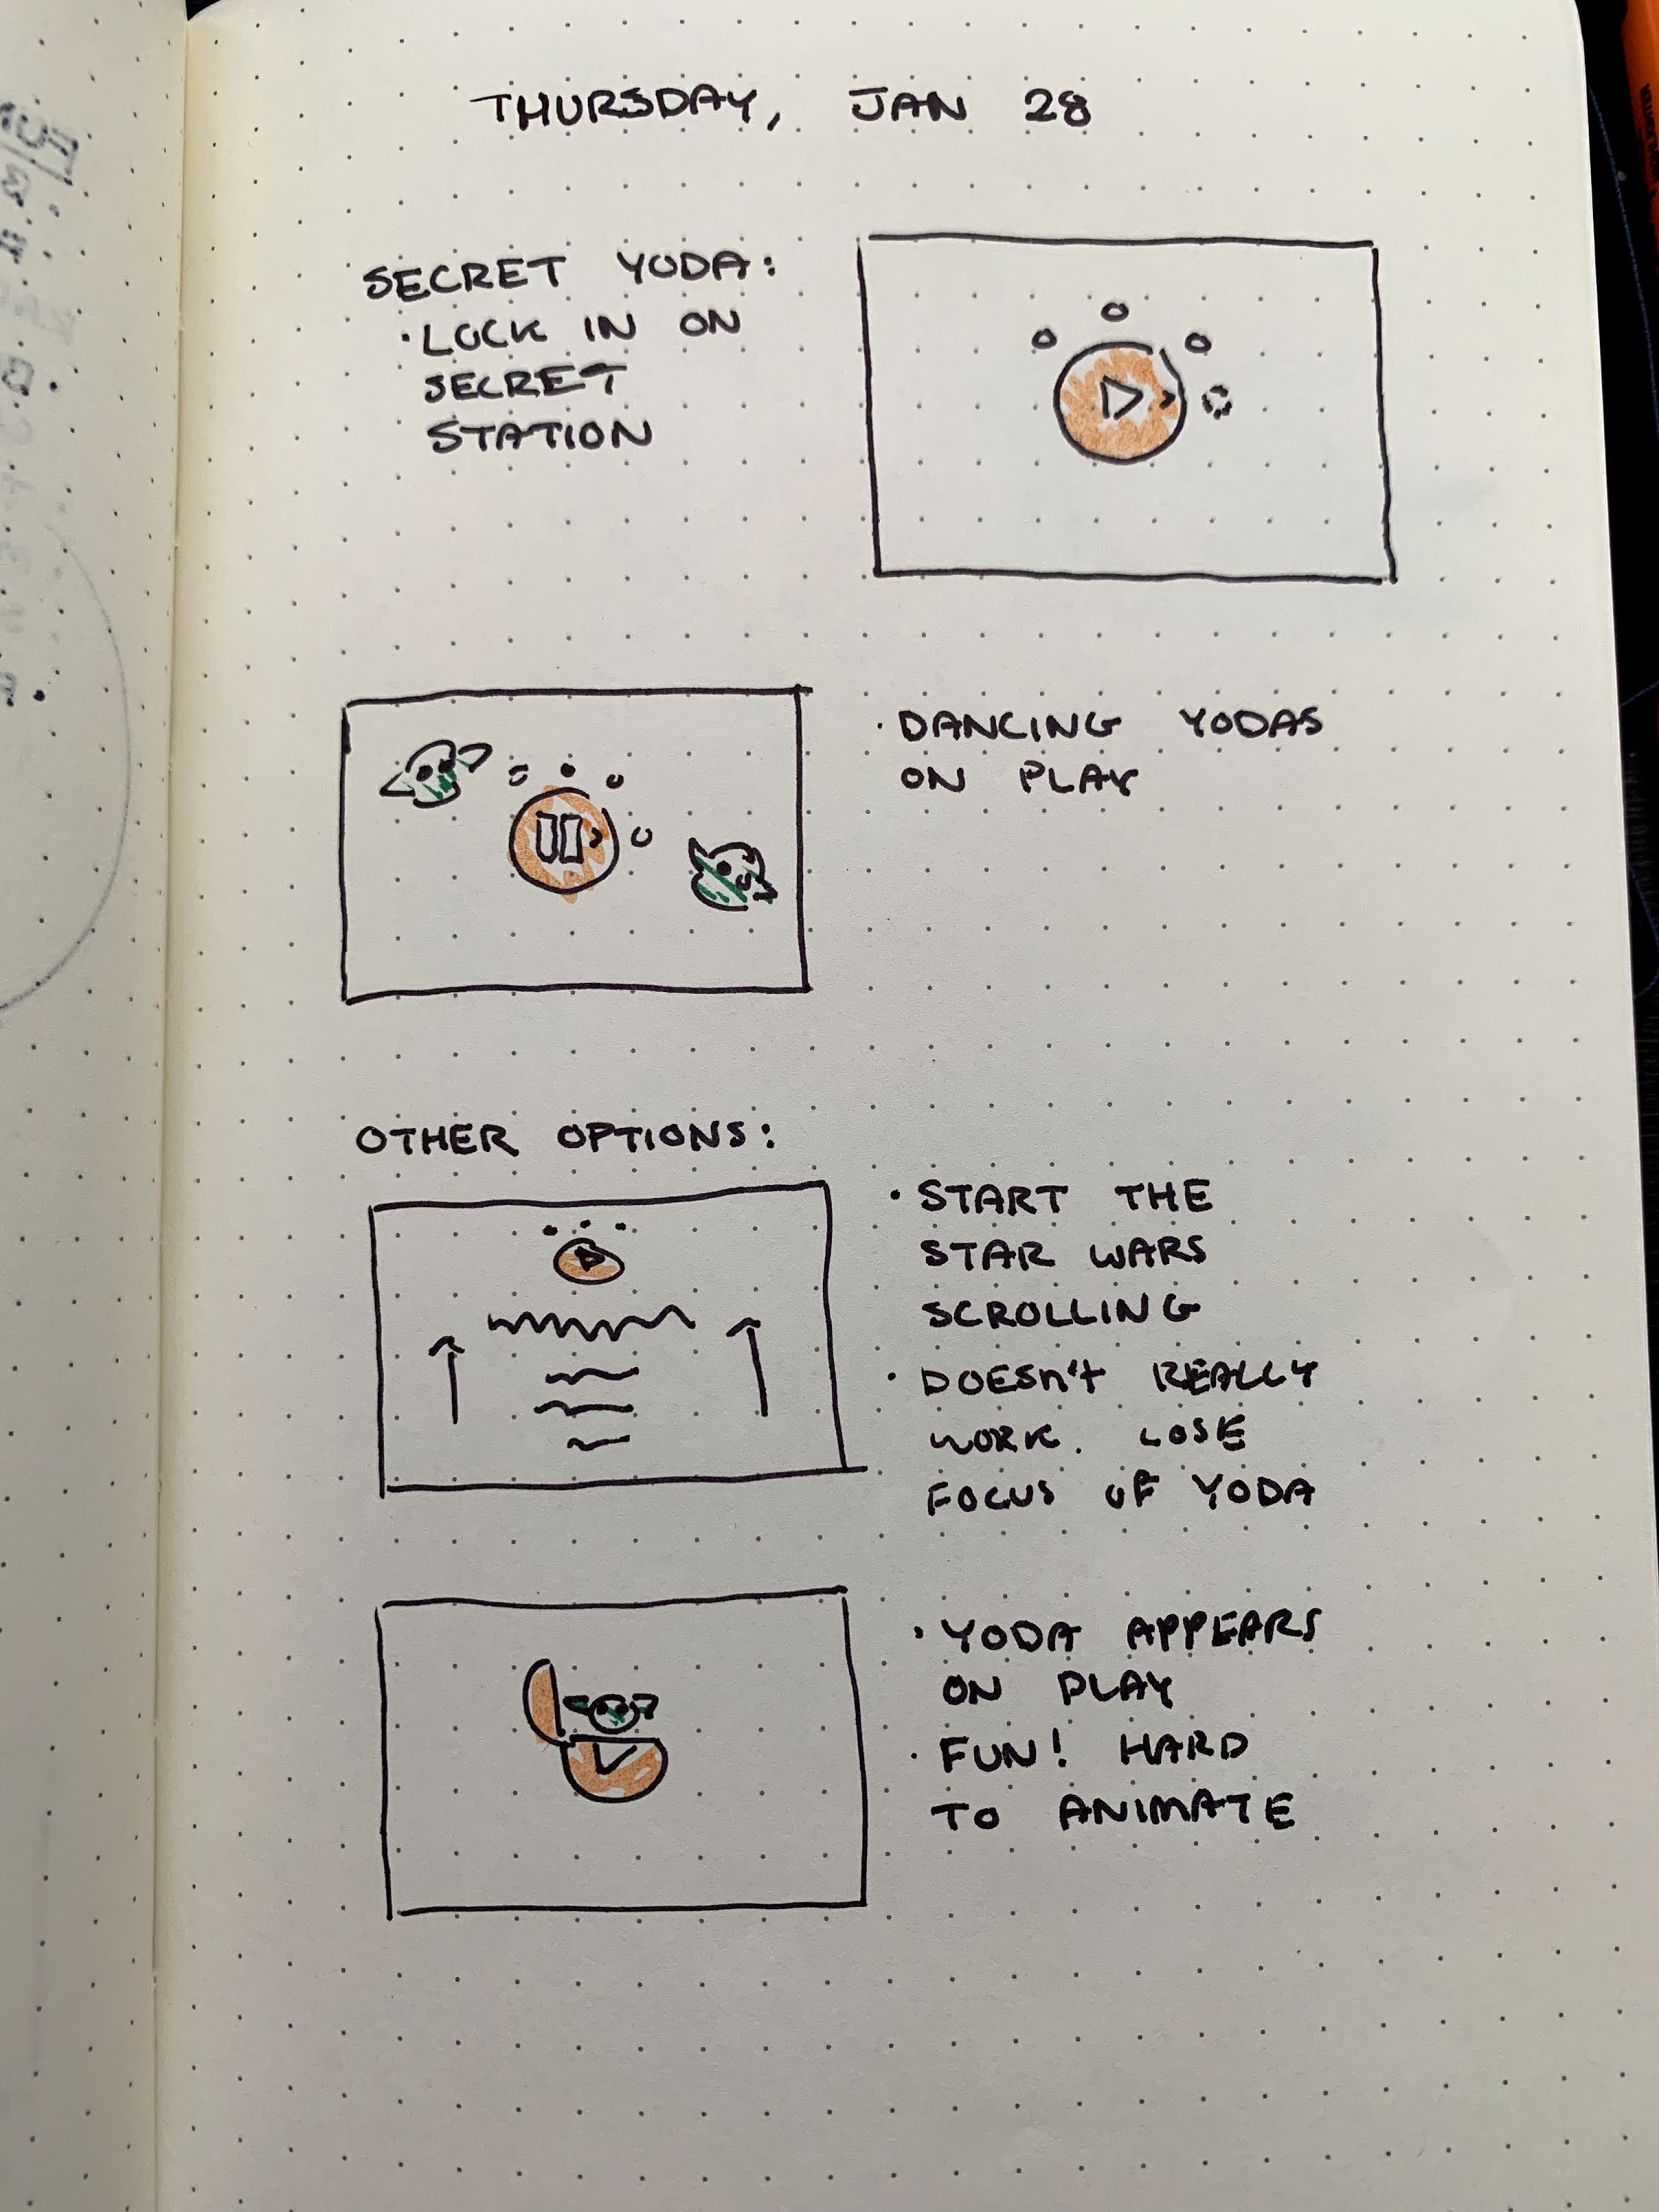 THURSDAY, JAN 28
SECRET YODA:
· LOCK IN ON
SECRET
STATION
· DANCING YODAS
ON PLAY
OTHER OPTIONS:
· START THE
STAR WARS
SCROLLING
· DOESN'T REALLY
WORK. LOSE
FOCUS OF YODA
· YODA APPEARS
ON PLAY
· FUN! HARD
TO ANIMATE